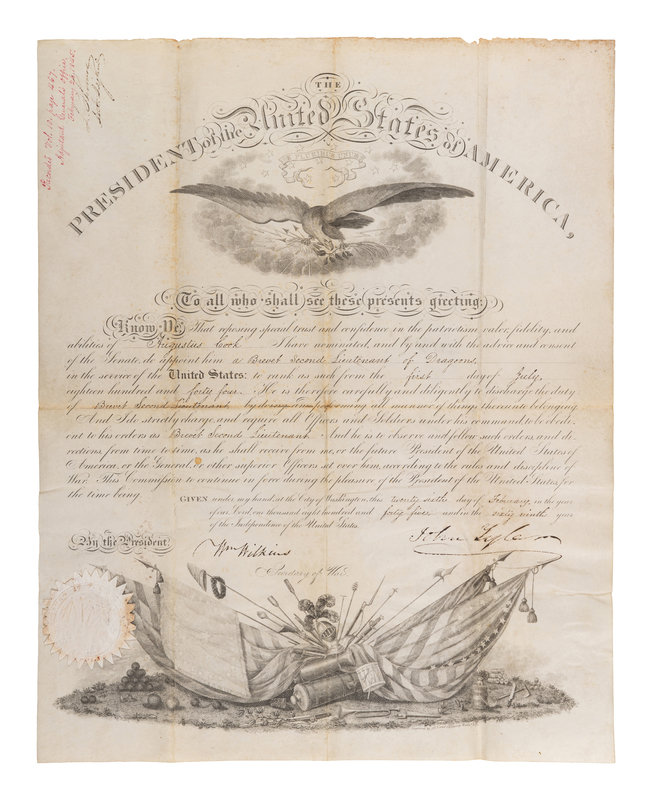 Recorded Vol. 12. page 267.
Adjutant General's Office,
February 28. 1845.
THE
PRESIDENT of the United States of AMERICA,
E PLURIBUS UNUM
To all who shall see these presents greeting:
Know Ye, That reposing special trust and confidence in the patriotism, valor, fidelity, and
abilities of Augustus Cook I have nominated, and by and with the advice and consent
of the Senate, do appoint him a Brevet Second Lieutenant of Dragoons,
in the service of the United States: to rank as such from the first day of July,
eighteen hundred and forty four. He is therefore carefully and diligently to discharge the duty
of Brevet Second Lieutenant by doing and performing all manner of things thereunto belonging.
And I do strictly charge, and require all Officers and Soldiers under his command to be obedi-
ent to his orders as Brevet Second Lieutenant And he is to observe and follow such orders, and di-
rections from time to time, as he shall receive from me, or the future President of the United States of
America, or the General, or other superior Officers set over him, according to the rules and discipline of
War. This Commission to continue in force during the pleasure of the President of the United States, for
the time being.
GIVEN under my hand, at the City of Washington, this twenty sixth day of February, in the year
of our Lord, one thousand eight hundred and forty five and in the sixty ninth year
of the Independence of the United States.
By the President
Wm Wilkins
John Tyler
Secretary of War.